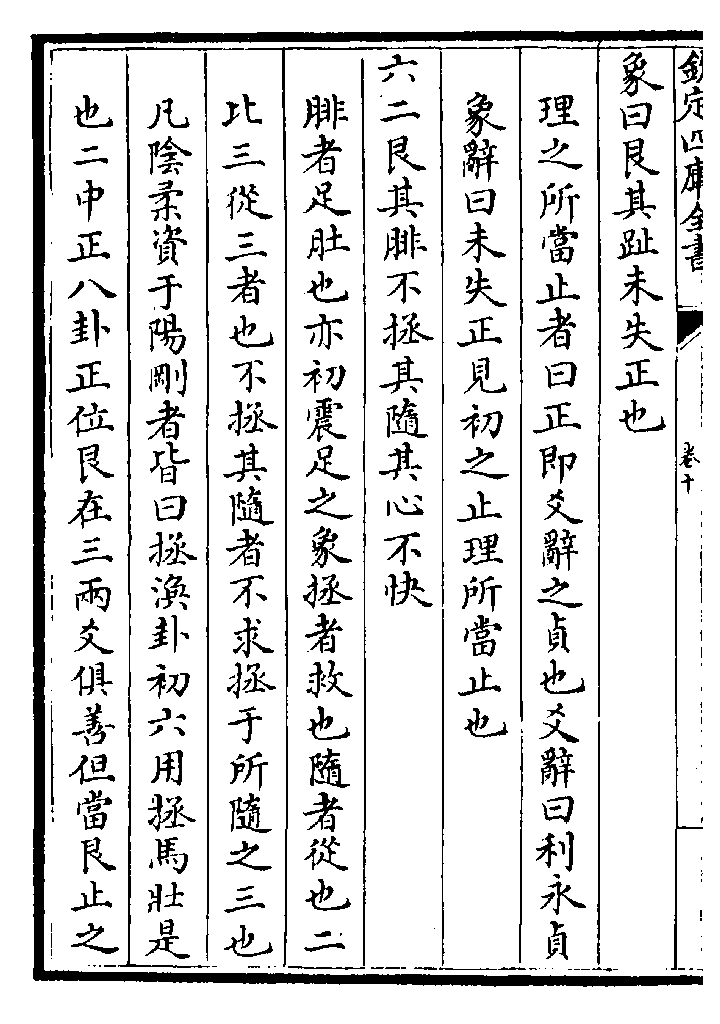 欽定四庫全書
卷十
象曰艮其趾未失正也
理之所當止者曰正即爻辭之貞也爻辭曰利永貞
象辭曰未失正見初之止理所當止也
六二艮其腓不拯其隨其心不快
腓者足肚也亦初震足之象拯者救也隨者從也二
比三從三者也不拯其隨者不求拯于所隨之三也
凡陰柔資于陽剛者皆曰拯渙卦初六用拯馬壯是
也二中正八卦正位艮在三兩爻俱善但當艮止之